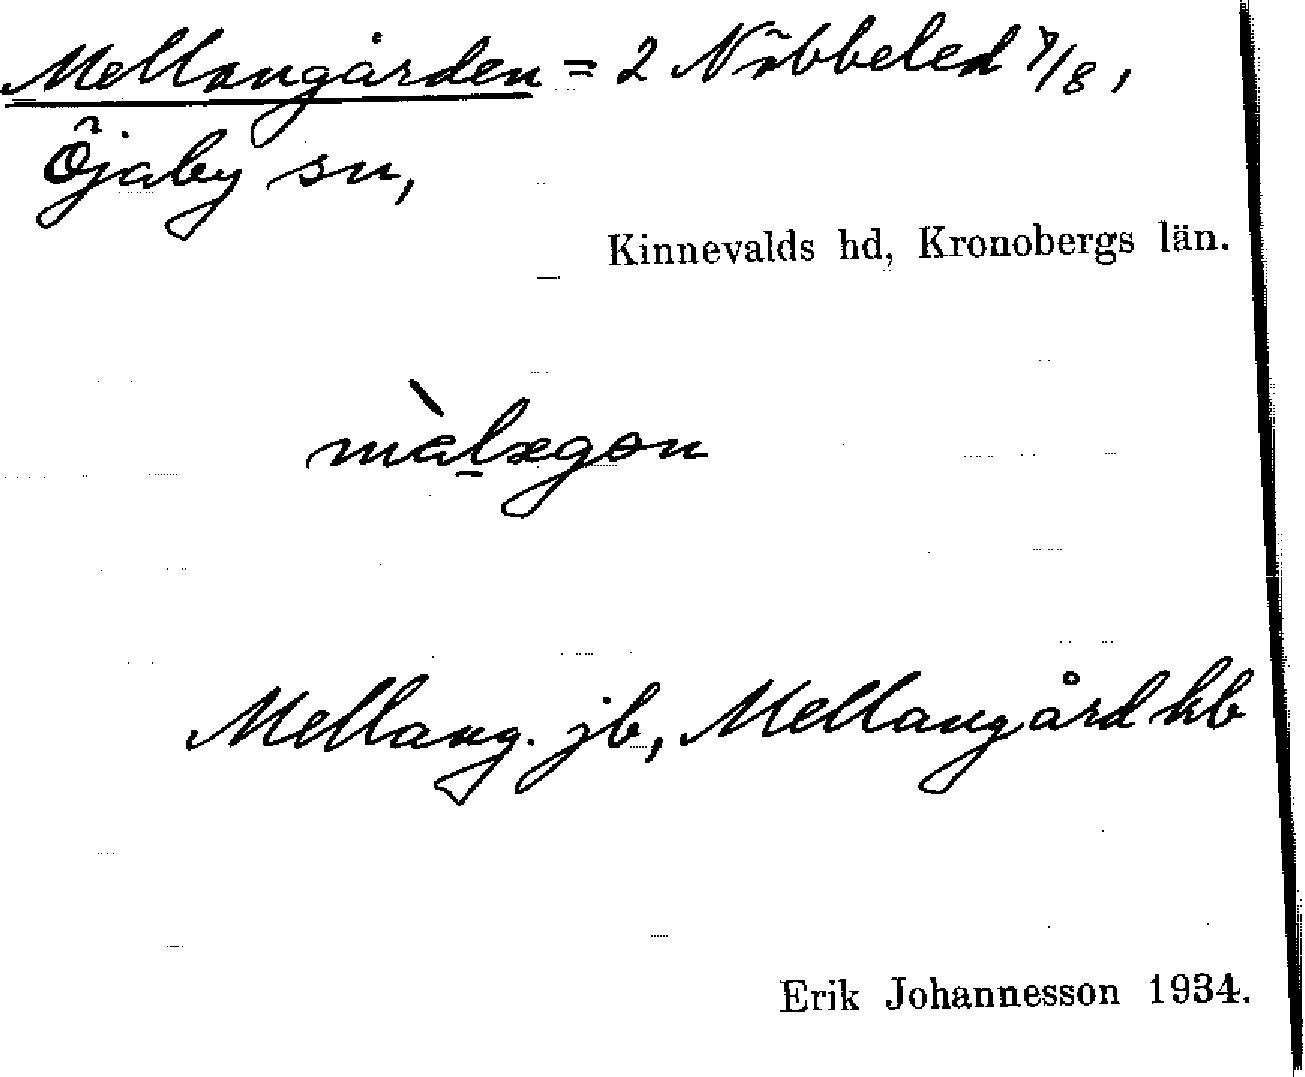 Mellangården = 2 Nöbbeled 7/8,
Öjaby sn,
Kinnevalds hd, Kronobergs län.
màlægon
Mellang. jb, Mellangård hb
Erik Johannesson 1934.